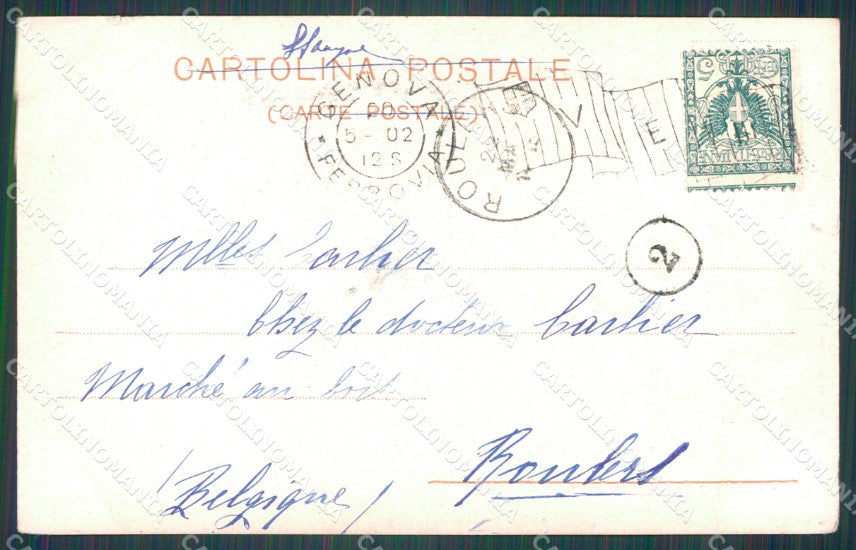 CARTOLINA POSTALE
(CARTE POSTALE)
GENOVA
5 - 02
12 S
FERROVIA
ROUL
V E
2
Mlles Carlier
Chez le docteur Carlier
Marché au bois
Roulers
(Belgique)
CARTOLINOMANIA